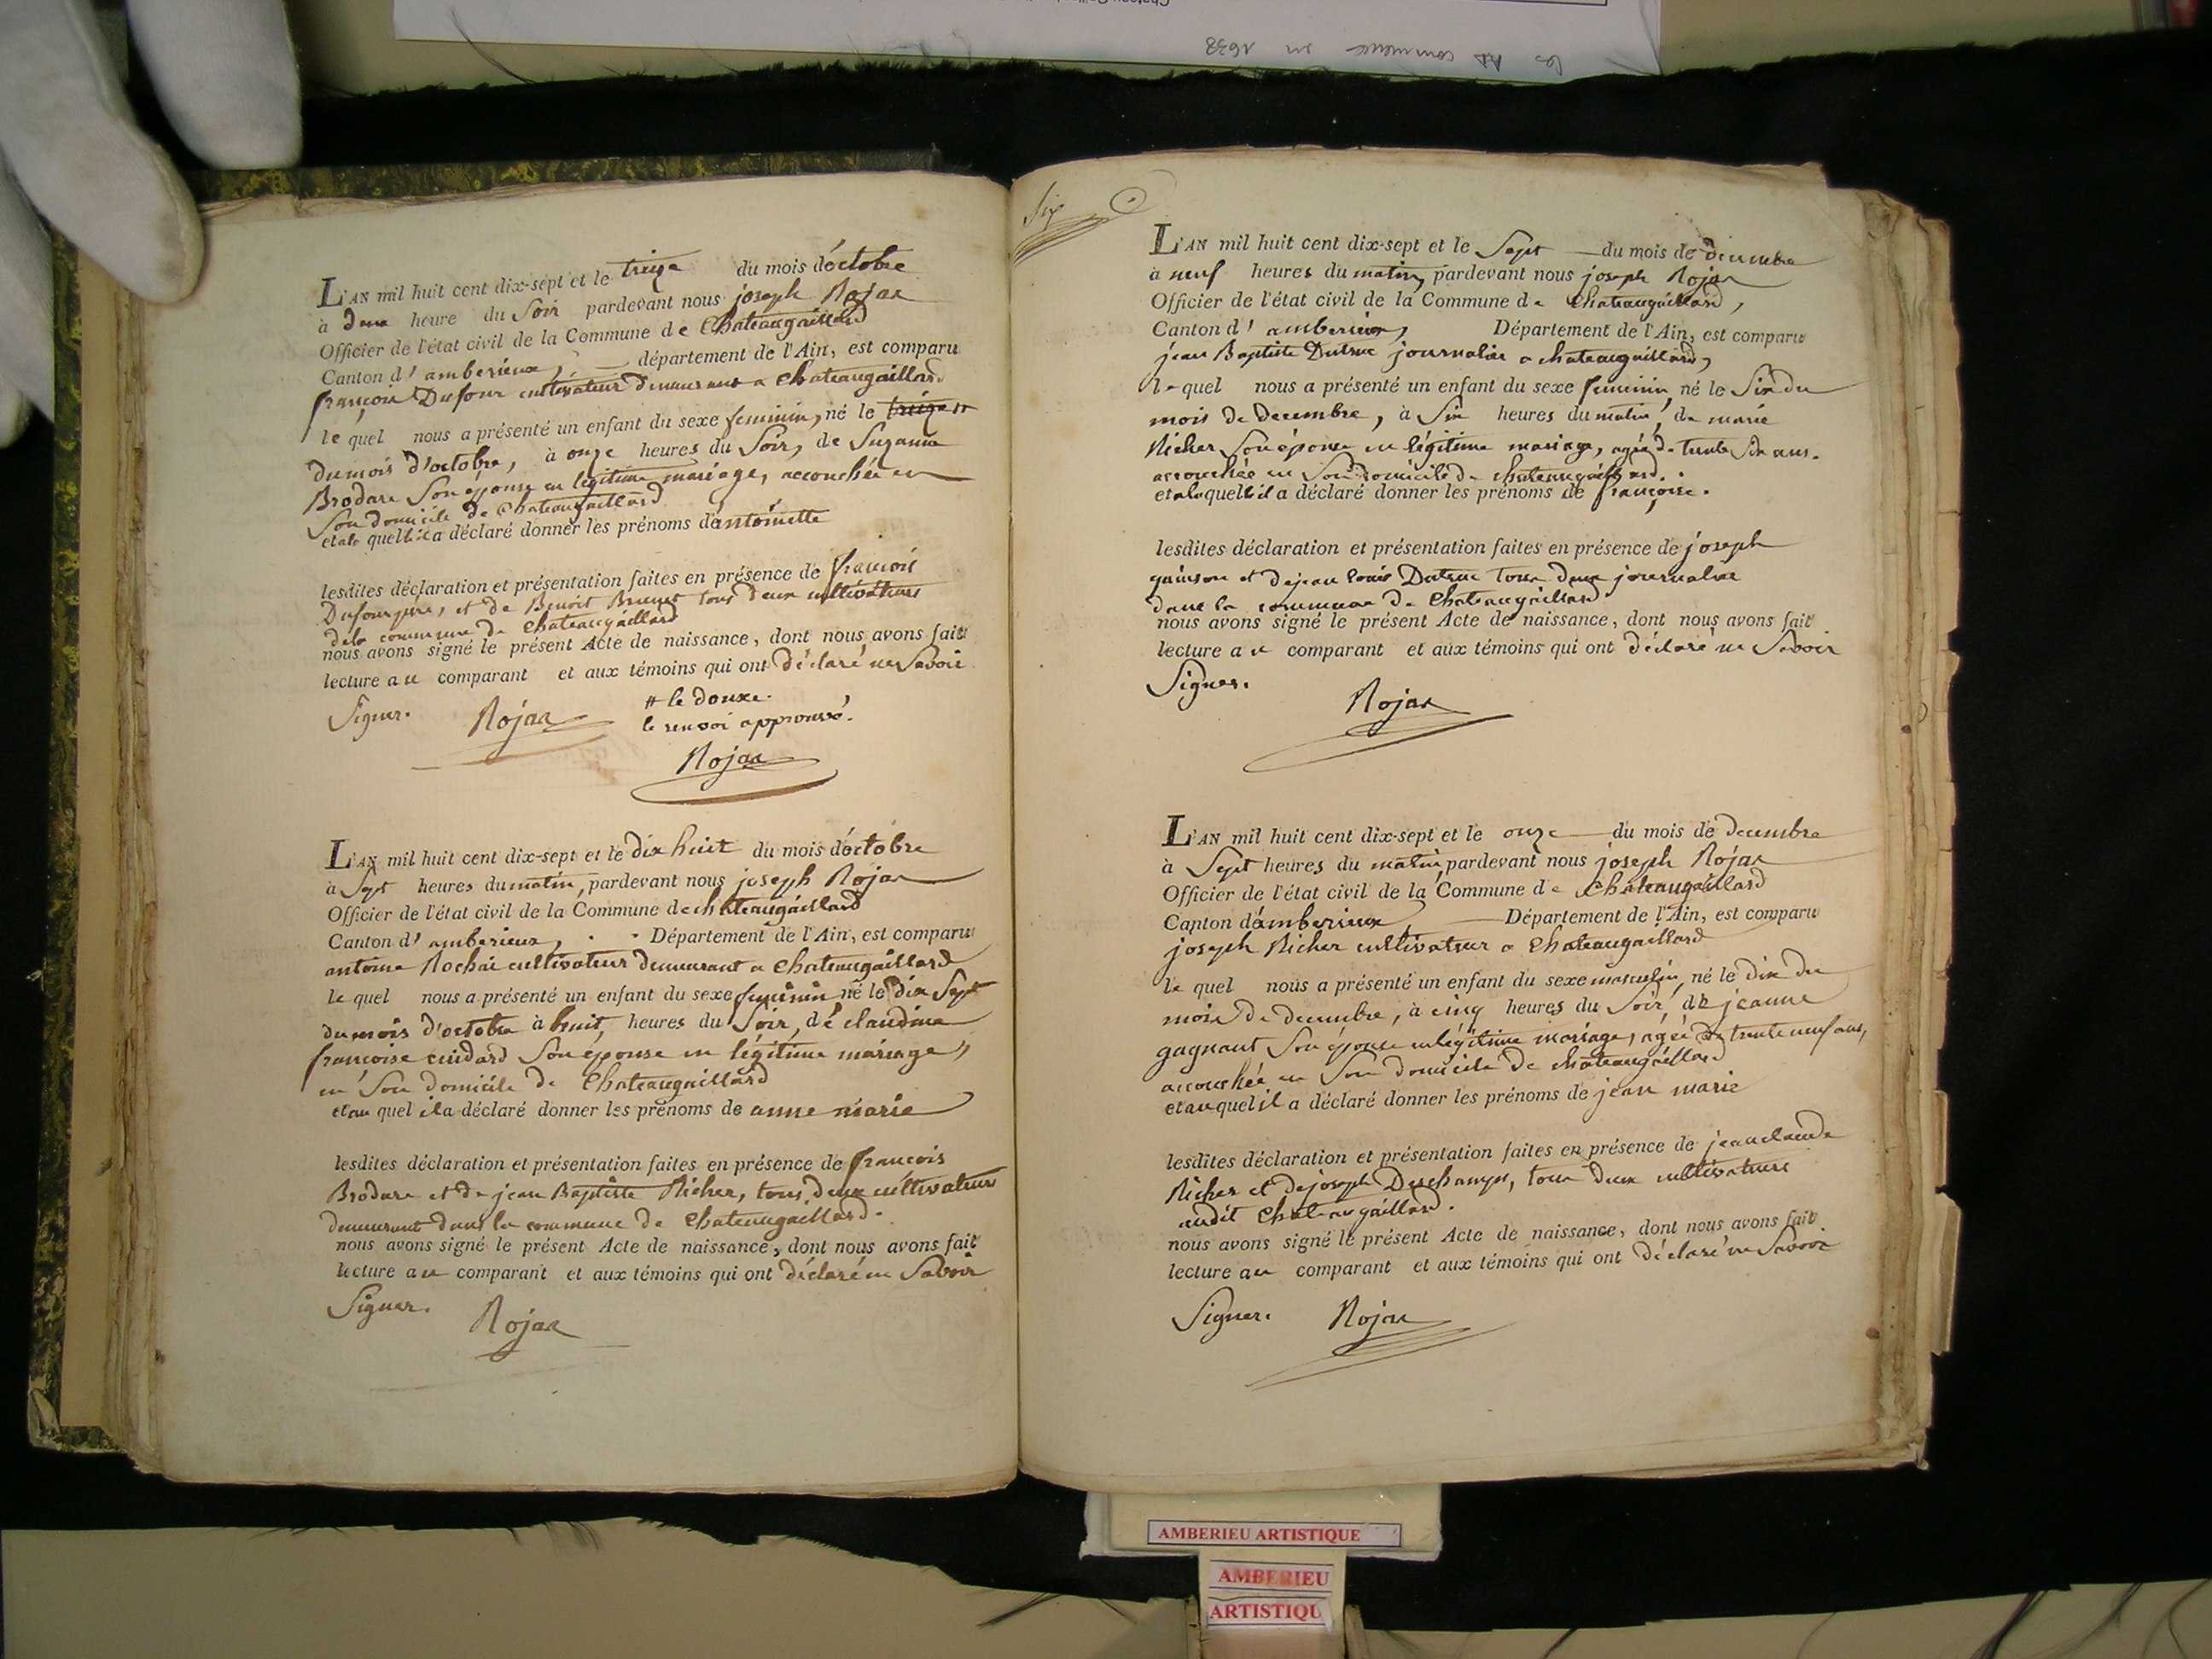 les commence en 1638
L'AN mil huit cent dix-sept et le treize du mois d'octobre
à deux heure du Soir pardevant nous joseph Rojar
Officier de l'état civil de la Commune de Chateaugaillard
Canton d'amberieux, département de l'Ain, est comparu
françois Dufour cultivateur demeurant a Chateaugaillard
le quel nous a présenté un enfant du sexe feminin, né le treize #
du mois d'octobre, à onze heures du Soir, de Suzanne
Brodare Son épouse en légitime mariage, accouchée en
Son domicile de Chateaugaillard
et a la quelle il a déclaré donner les prénoms d'antoinette
lesdites déclaration et présentation faites en présence de francois
Dufour pere, et de Benoit Brunet tous deux cultivateurs
de la commune de Chateaugaillard
nous avons signé le présent Acte de naissance, dont nous avons fait
lecture au comparant et aux témoins qui ont déclaré ne Savoir
Signer. Rojar
# le douze.
le renvoi approuvé.
Rojar
L'AN mil huit cent dix-sept et le dix huit du mois d'octobre
à Sept heures du matin, pardevant nous joseph Rojar
Officier de l'état civil de la Commune de chateaugaillard
Canton d'amberieux, Département de l'Ain, est comparu
antoine Rochai cultivateur demeurant a Chateaugaillard
le quel nous a présenté un enfant du sexe feminin né le dix Sept
du mois d'octobre à huit heures du Soir, de claudine
françoise cuidard Son épouse en légitime mariage,
en Son domicile de Chateaugaillard
et au quel il a déclaré donner les prénoms de anne marie
lesdites déclaration et présentation faites en présence de francois
Brodare et de jean Baptiste Richer, tous deux cultivateurs
demeurant dans la commune de Chateaugaillard.
nous avons signé le présent Acte de naissance, dont nous avons fait
lecture au comparant et aux témoins qui ont déclaré ne Savoir
Signer. Rojar
Six
L'AN mil huit cent dix-sept et le Sept du mois de decembre
à neuf heures du matin, pardevant nous joseph Rojar
Officier de l'état civil de la Commune de Chateaugaillard,
Canton d'amberieux, Département de l'Ain, est comparu
jean Baptiste Dutruc journalier a chateaugaillard,
le quel nous a présenté un enfant du sexe feminin, né le Six du
mois de decembre, à Six heures du matin, de marie
Richer Son épouse en légitime mariage, agée de trente Six ans.
accouchée en Son domicile de chateaugaillard.
et a la quelle il a déclaré donner les prénoms de françoise.
lesdites déclaration et présentation faites en présence de joseph
et de jean louis Dutruc tous deux journalier
dans la commune de Chateaugaillard
nous avons signé le présent Acte de naissance, dont nous avons fait
lecture au comparant et aux témoins qui ont déclaré ne Savoir
Signer.
Rojar
L'AN mil huit cent dix-sept et le onze du mois de decembre
à Sept heures du matin pardevant nous joseph Rojar
Officier de l'état civil de la Commune de Chateaugaillard
Canton d'amberieux Département de l'Ain, est comparu
joseph Richer cultivateur a Chateaugaillard
le quel nous a présenté un enfant du sexe masculin, né le dix du
mois de decembre, à cinq heures du Soir, de jeanne
gagnant Son épouse en légitime mariage, agée de trente neuf ans,
accouchée en Son domicile de chateaugaillard
et au quel il a déclaré donner les prénoms de jean marie
lesdites déclaration et présentation faites en présence de jean claude
Richer et de joseph Deschamps, tous deux cultivateurs
audit Chateaugaillard.
nous avons signé le présent Acte de naissance, dont nous avons fait
lecture au comparant et aux témoins qui ont déclaré ne Savoir
Signer. Rojar
AMBERIEU ARTISTIQUE
AMBERIEU
ARTISTIQU